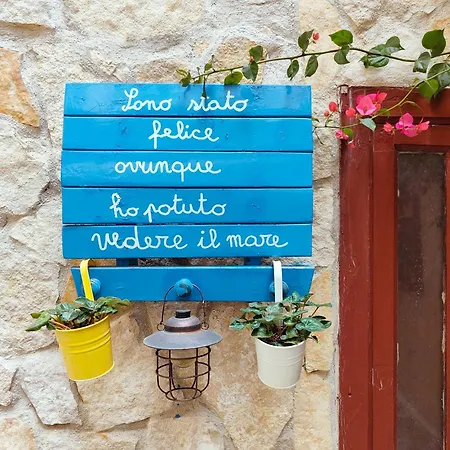 Sono stato
felice
ovunque
ho potuto
vedere il mare